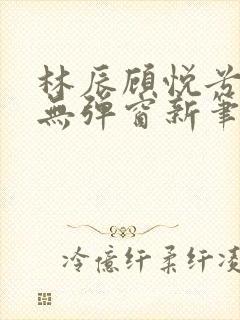 林辰顾悦兮
無彈窗新筆
冷億纤柔纤凌